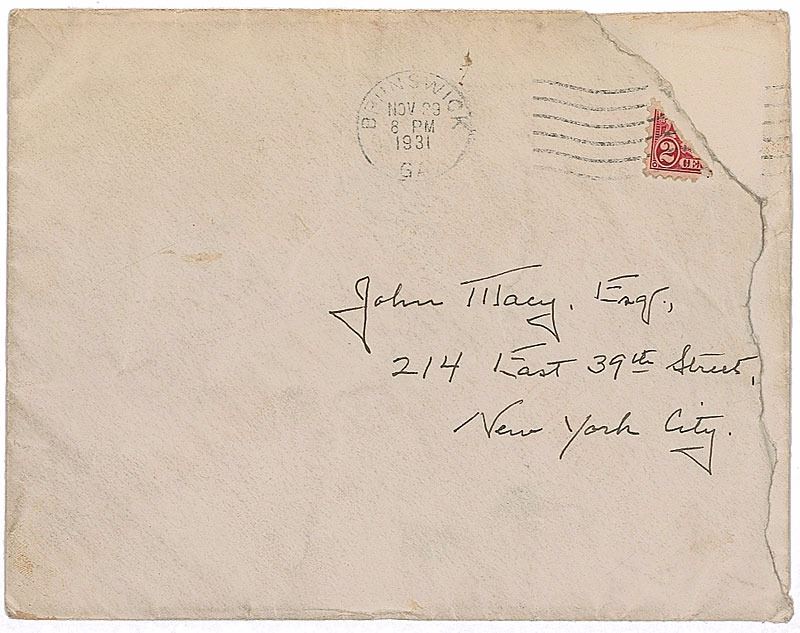 BRUNSWICK
NOV 29
8 PM
1931
GA
2
John Macy, Esq.,
214 East 39th Street,
New York City.